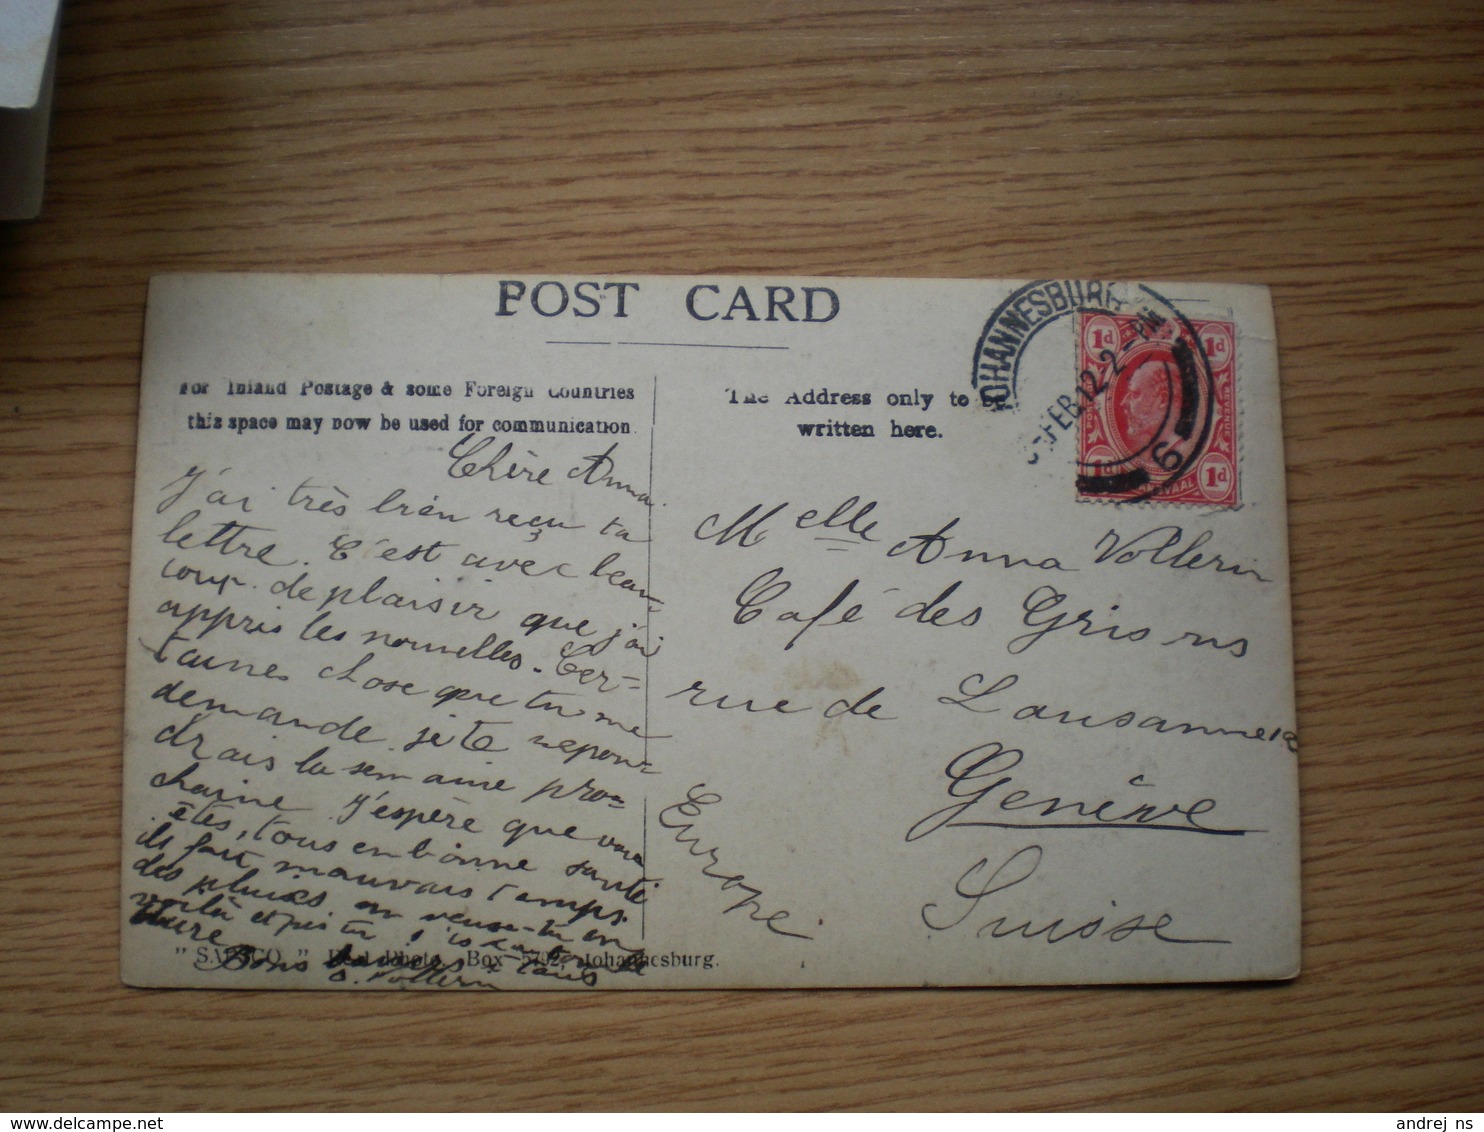 POST CARD
For Inland Postage & some Foreign Countries
this space may now be used for communication
The Address only to be
written here.
JOHANNESBURG
FEB 12 2-PM
6
1d 1d
POSTAGE REVENUE
1d 1d
TRANSVAAL
Chère Anna
J'ai très bien reçu ta
lettre. C'est avec beau-
coup de plaisir que j'ai
appris les nouvelles. Cer-
taines chose que tu me
demande je te repon-
drais la semaine pro-
chaine J'espère que vous
êtes, tous en bonne santé
ils fait mauvais temps
des pluies en
voilà et puis tu
Bons
Vollerin
Melle Anna Vollerin
Café des Grisons
rue de Lausanne
Genève
Suisse
Europe
Real Photo, Box 5792, Johannesburg.
andrej ns